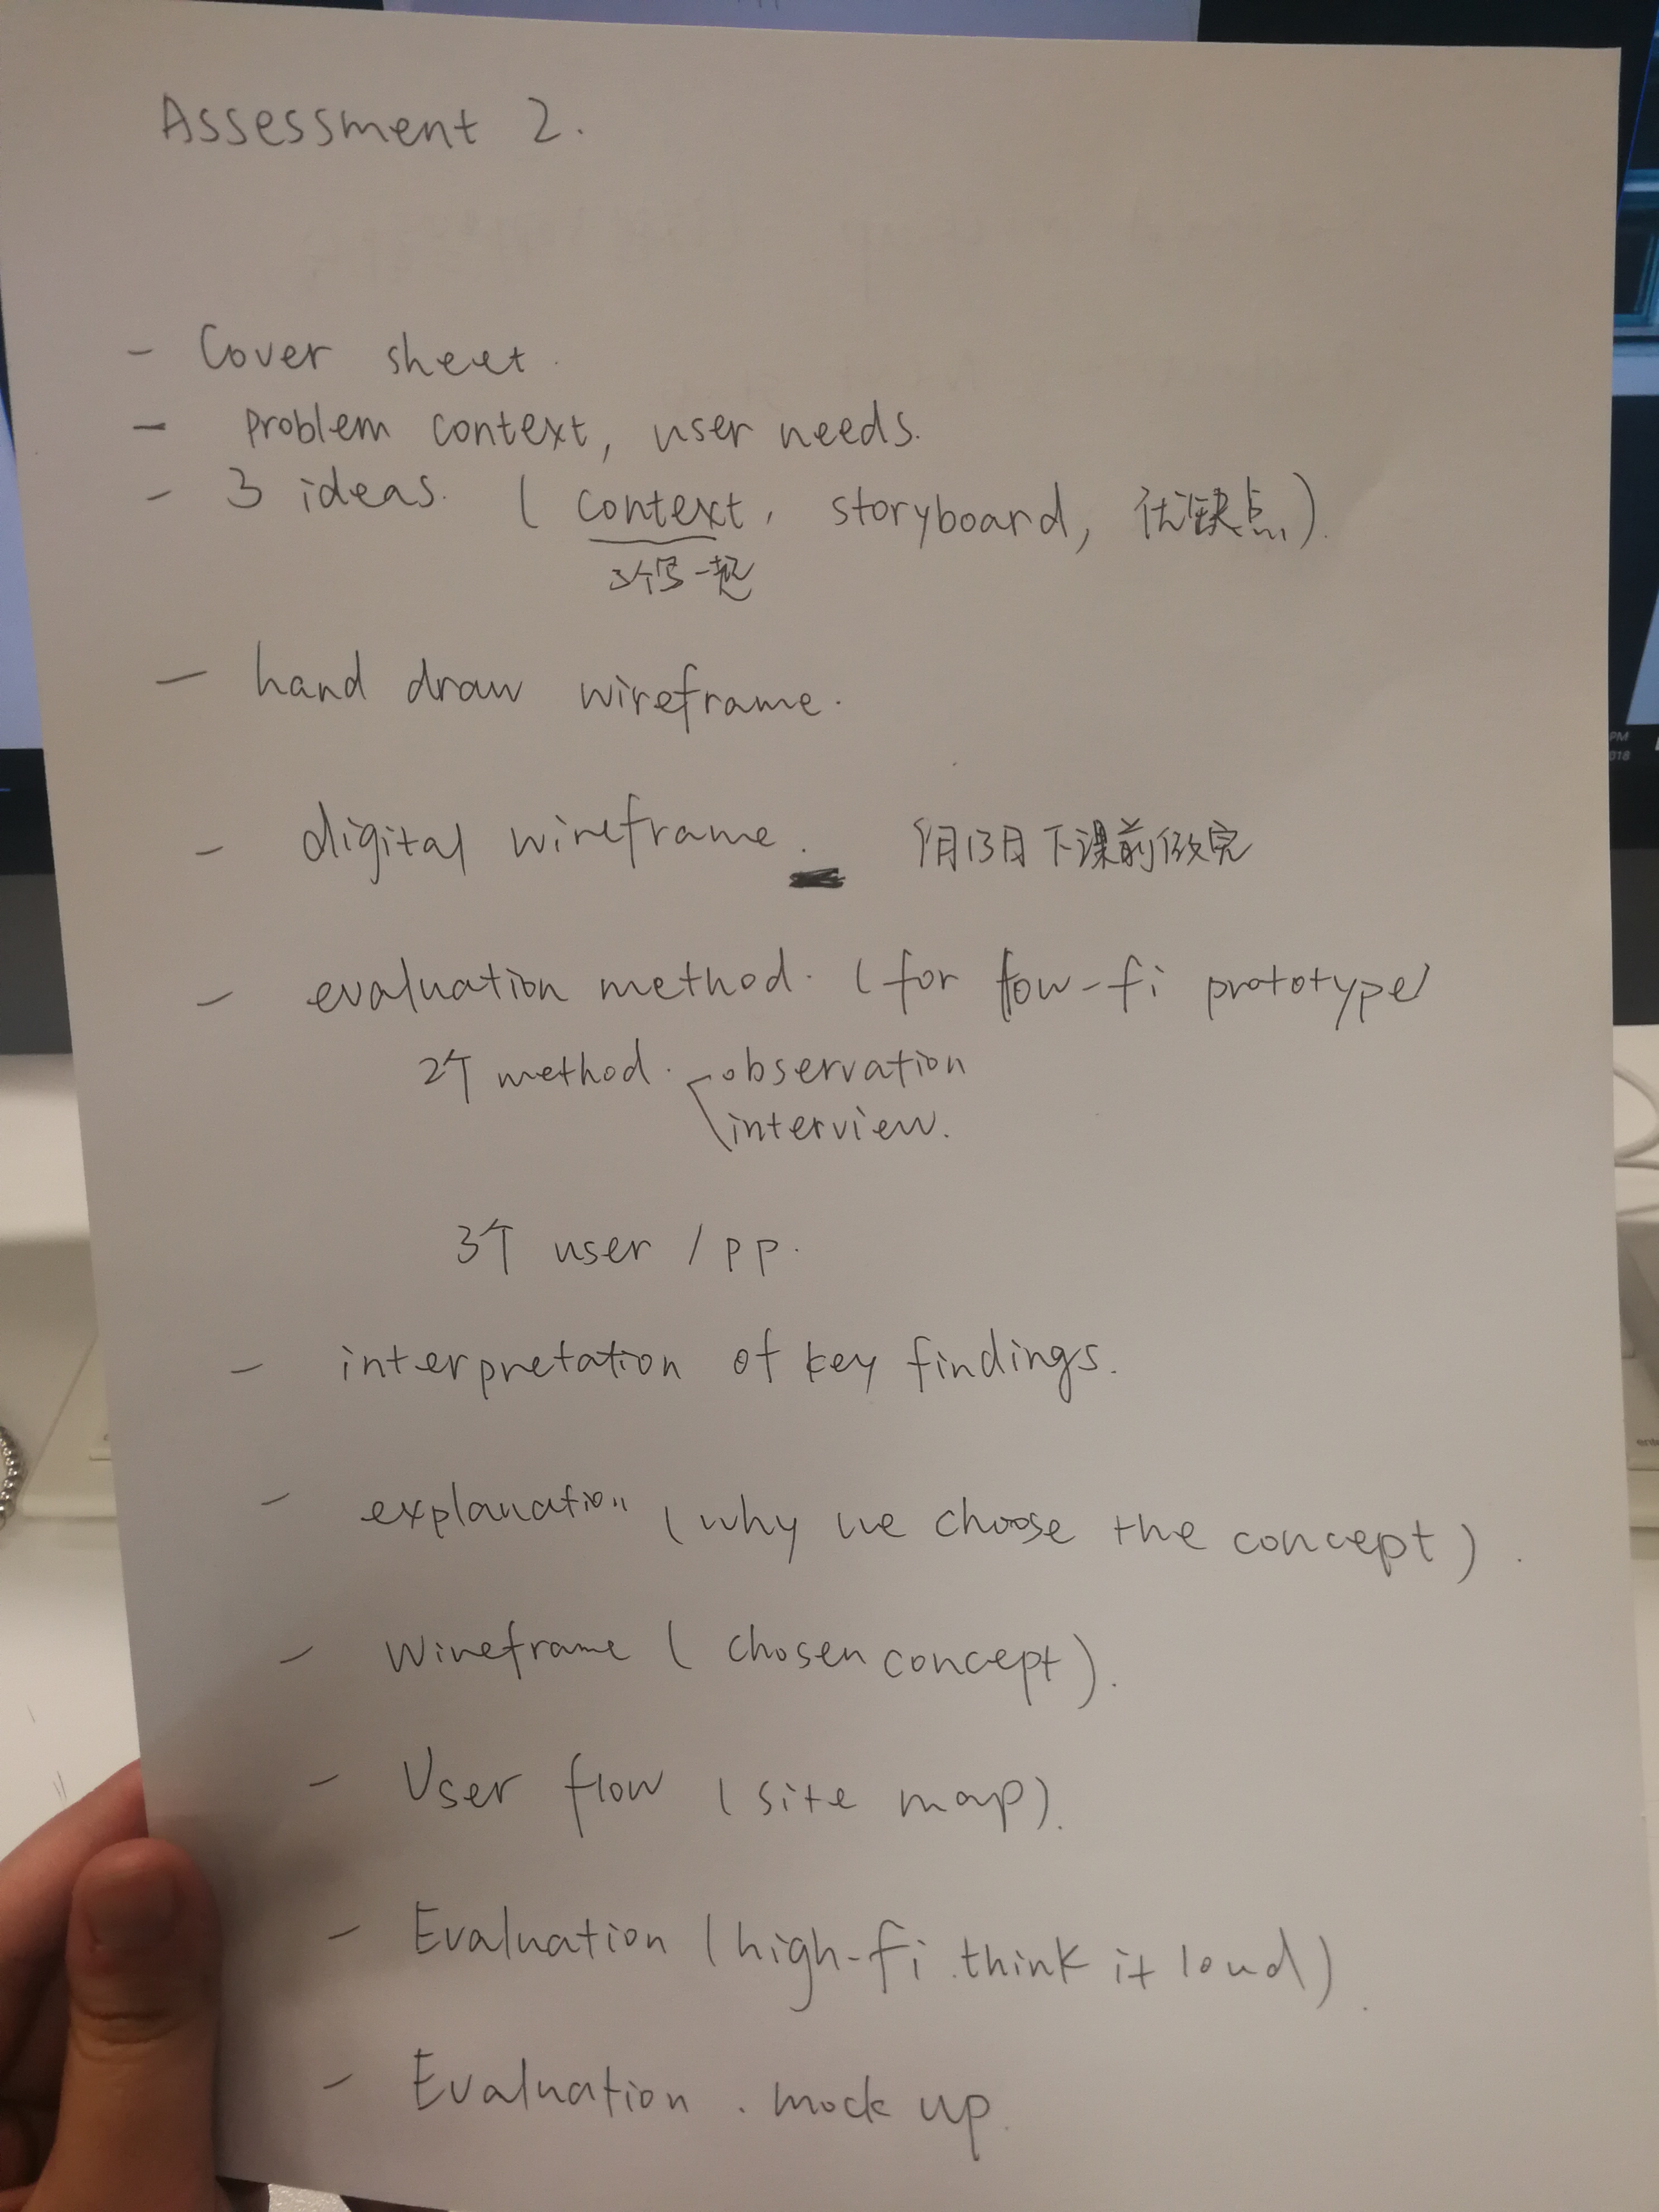 Assessment 2.
- Cover sheet.
- problem context, user needs.
- 3 ideas. (context, storyboard, 优缺点).
3个写一起
- hand draw wireframe.
- digital wireframe. 9月13日下课前做完
- evaluation method. (for low-fi prototype)
2个 method. observation
interview.
3个 user / pp.
- interpretation of key findings.
- explanation (why we choose the concept).
- wireframe (chosen concept).
- User flow (site map).
- Evaluation (high-fi. think it loud).
- Evaluation. mock up.
PM
018